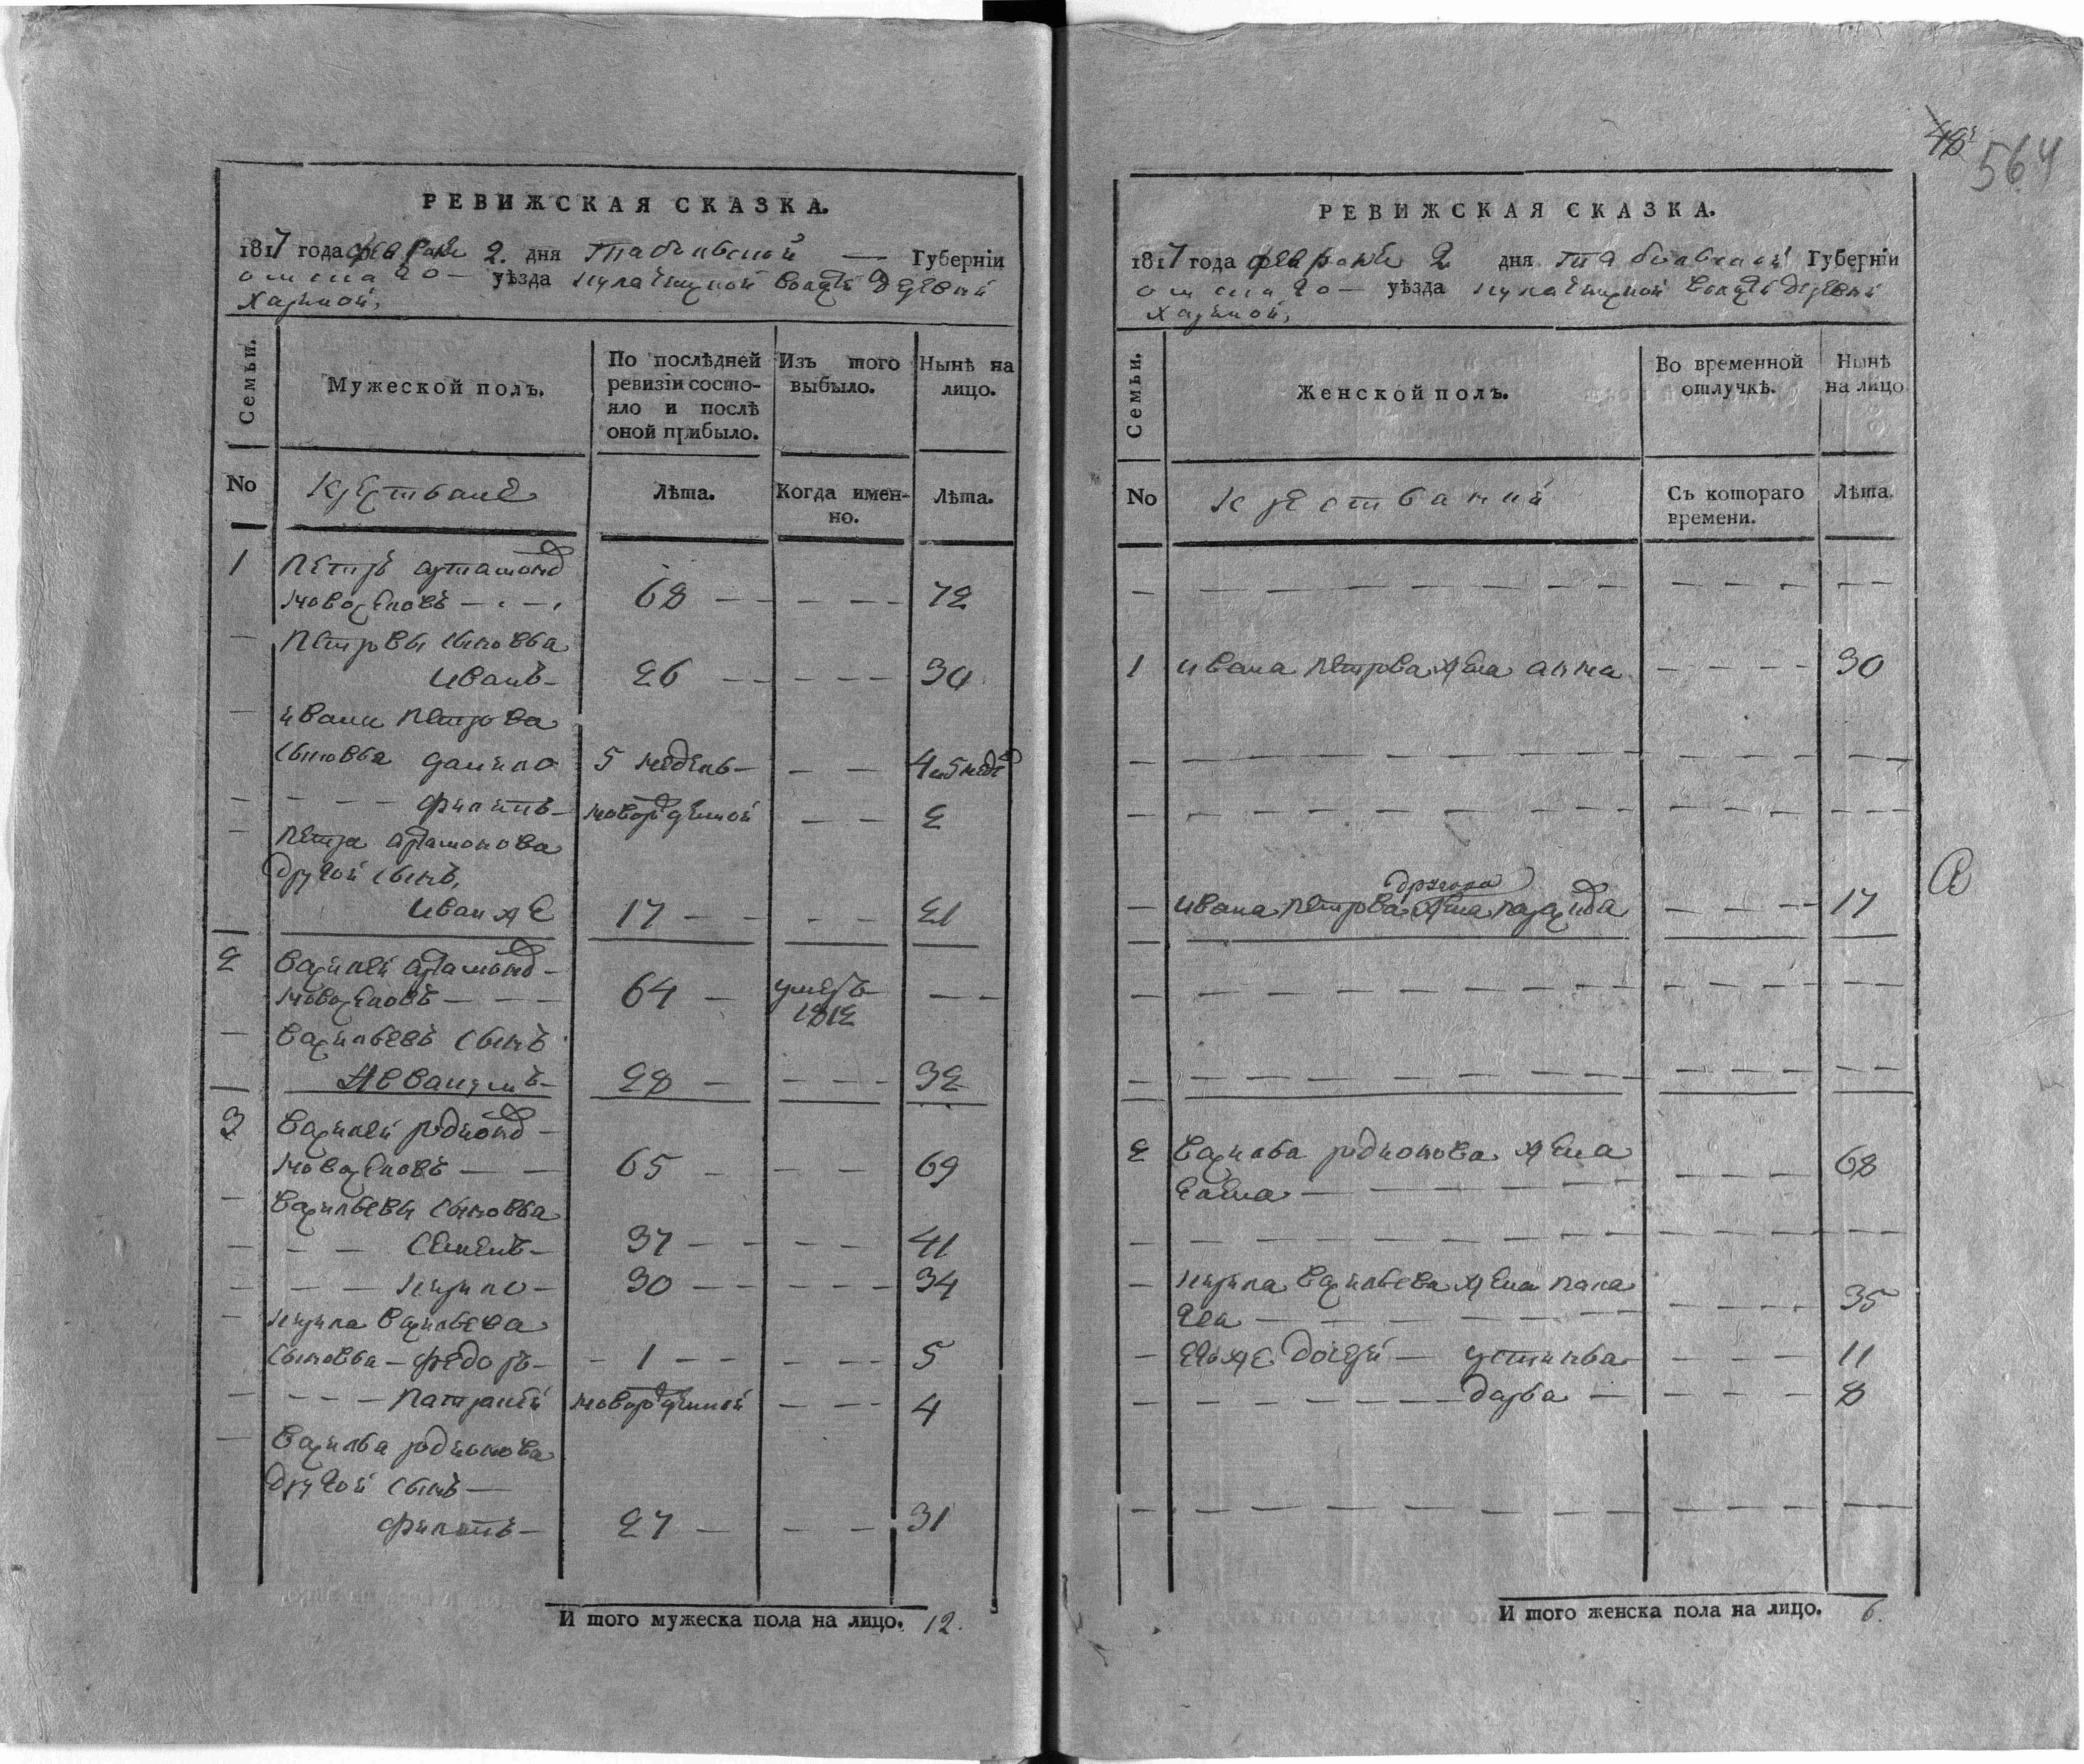 48
564
РЕВИЖСКАЯ СКАЗКА.
1817 года февраля 2. дня Тобольской — Губерніи
омскаго — уѣзда кулачинской волости деревни
Харино́й,
Семьи.
Мужеской полъ.
По послѣдней ревизіи состо-
яло и послѣ
оной прибыло.
Изъ того выбыло.
Нынѣ на лицо.
No
Крестьяне
Лѣта.
Когда имен-
но.
Лѣта.
1 Петръ артамоновъ
новоселовъ — 68 — — 72
— Петровы сыновья
Иванъ — 26 — — 30
— ивана Петрова
сыновья данило 5 недель — — 4 и 5 неде
— филипъ — новорожденной — — 2
— Петра артамонова
другой сынъ,
Иван же 17 — — 21
2 Василей артамоновъ —
новоселовъ — 64 — умеръ 1812 — —
— Васильевъ сынъ
Аввакумъ — 28 — — 32
3 Василей родионовъ —
новоселовъ — 65 — — 69
— Васильевы сыновья
— Семенъ — 37 — — 41
— кирило — 30 — — 34
— кирила Васильева
сыновья — федоръ — 1 — — 5
— патракей новорожденной — — 4
— Василья родионова
другой сынъ —
филипъ — 27 — — 31
И того мужеска пола на лицо. 12.
РЕВИЖСКАЯ СКАЗКА.
1817 года февраля 2 дня Тобольской Губерніи
омскаго — уѣзда кулачинской волости деревни
Хариной,
Семьи.
Женской полъ.
Во временной отлучкѣ.
Нынѣ на лицо
No
Крестьяной
Съ котораго времени.
Лѣта.
1 Ивана Петрова жена анна — — 30
другова
— Ивана Петрова жена парасковья — — 17
2 Василья родионова жена
елена — — 68
— кирила Васильева жена пала
гея — — 35
— ево же дочери — устинья — — 11
— дарья — — 8
И того женска пола на лицо. 6.